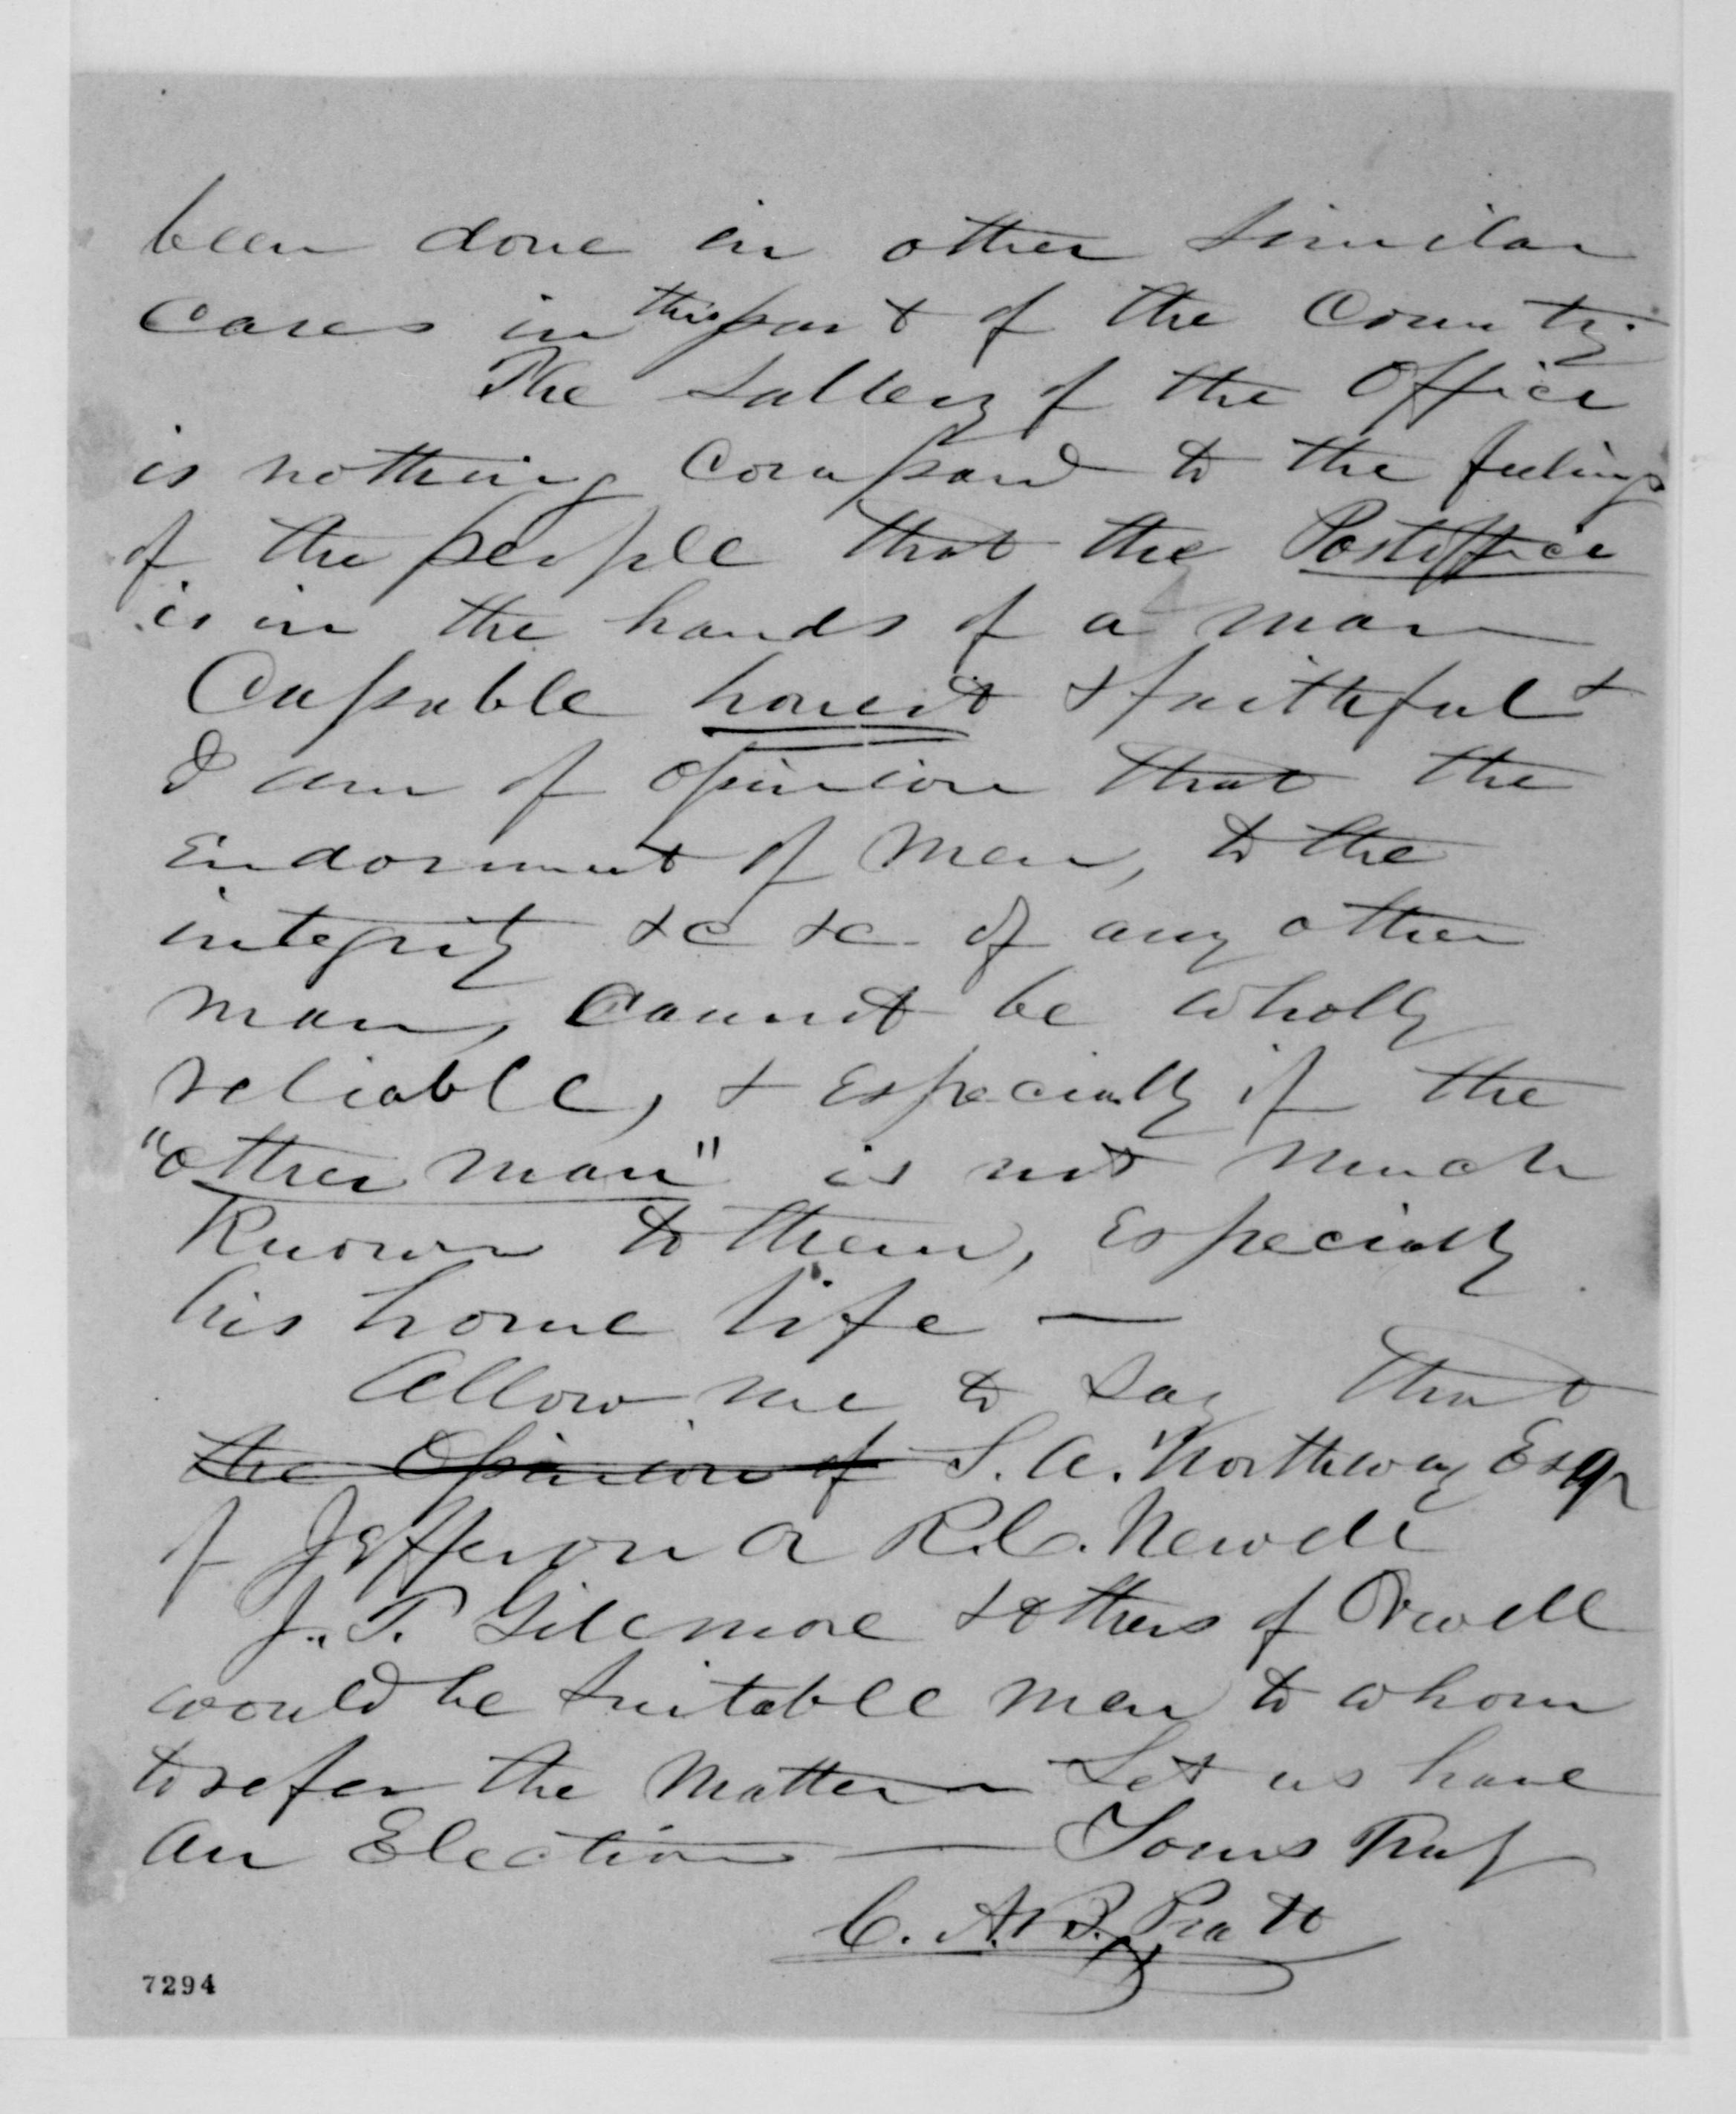 been done in other similar
cases in this part of the County.
The Sallery of the Office
is nothing Compard to the feelings
of the people that the Postoffice
is in the hands of a man
Capable honest & faithful &
I am of opinion that the
Endorsment of Men, to the
integrity &c &c of any other
man, Cannot be wholly
reliable, & Especially if the
"other man" is not much
Known to them, Especially
his home life —
Allow me to say that
the Opinion of S. A. Northway Esqr
of Jefferson or R. C. Newell
J. T. Gilemore & others of Orwell
would be suitable men to whom
to refer the Matter — Let us have
an Election — Yours Truly
C. A. B. Pratt
7294